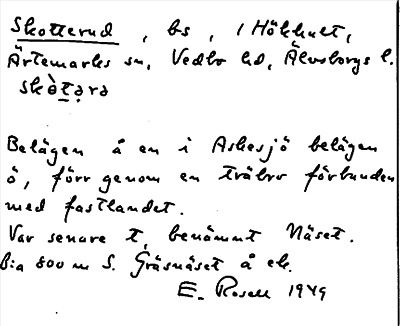 Skotterud, bs, i Hökhult,
Ärtemarks sn, Vedbo hd, Älvsborgs l.
skò̱tạrə
Belägen å en i Askesjö belägen
ö, förr genom en träbro förbunden
med fastlandet.
Var senare t, benämnt Näset.
Bia 800 m S. Gräsnäset å ek.
E. Rosell 1949